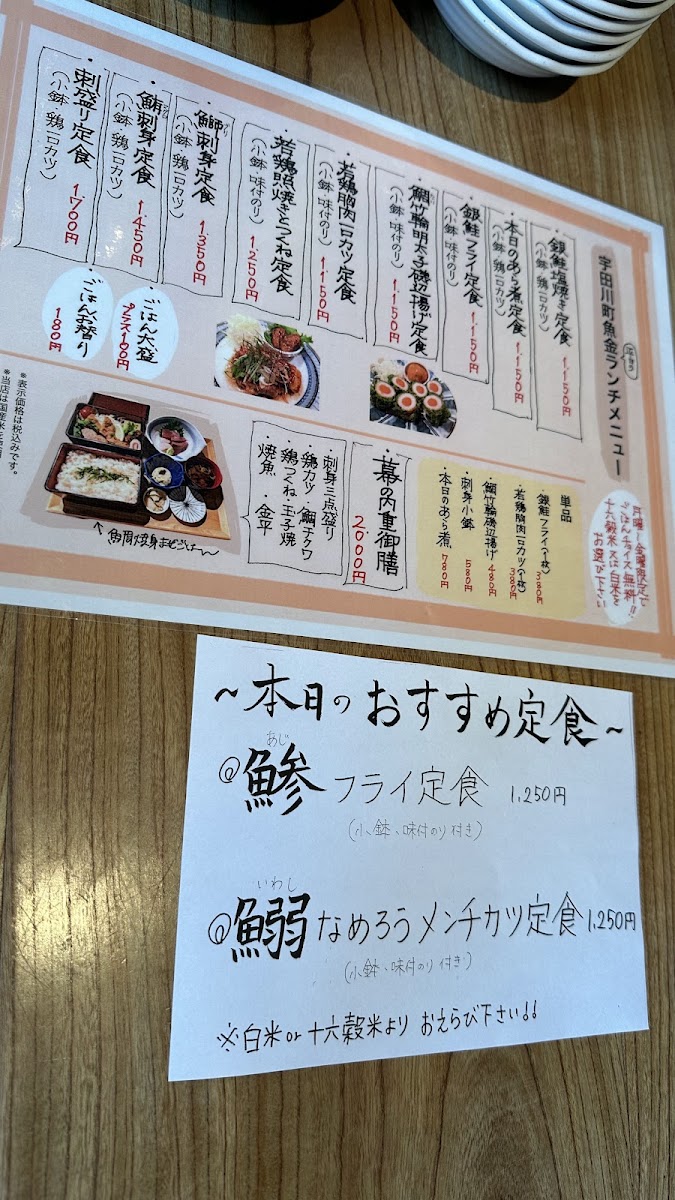 宇田川町魚金ランチメニュー
平日
月曜〜金曜限定で
ごはんチョイス無料!!
十六穀米又は白米を
お選び下さい
・銀鮭塩焼き定食 1.150円
(小鉢・鶏一口カツ)
・本日のあら煮定食 1.150円
(小鉢・鶏一口カツ)
・銀鮭フライ定食 1.150円
(小鉢・味付のり)
・鯛竹輪明太子磯辺揚げ定食 1.150円
(小鉢・味付のり)
・若鶏胸肉一口カツ定食 1.150円
(小鉢・味付のり)
・若鶏照焼きとつくね定食 1.250円
(小鉢・味付のり)
・鰤刺身定食 1.350円
(小鉢・鶏一口カツ)
・鮪刺身定食 1.450円
(小鉢・鶏一口カツ)
・刺盛り定食 1.700円
(小鉢・鶏一口カツ)
・ごはん大盛
プラス100円
・ごはんお替り
180円
単品
・銀鮭フライ(一枚) 380円
・若鶏胸肉一口カツ(一枚) 380円
・鯛竹輪磯辺揚げ 480円
・刺身小鉢 580円
・本日のあら煮 780円
・幕の内重御膳
2000円
・刺身三点盛り
・鶏カツ・鯛チクワ
・鶏つくね・玉子焼
・焼魚・金平
*表示価格は税込みです。
〜本日のおすすめ定食〜
あじ
@鯵フライ定食 1,250円
(小鉢、味付のり付き)
いわし
@鰯なめろうメンチカツ定食 1,250円
(小鉢、味付のり付き)
※白米or十六穀米より おえらび下さい!!